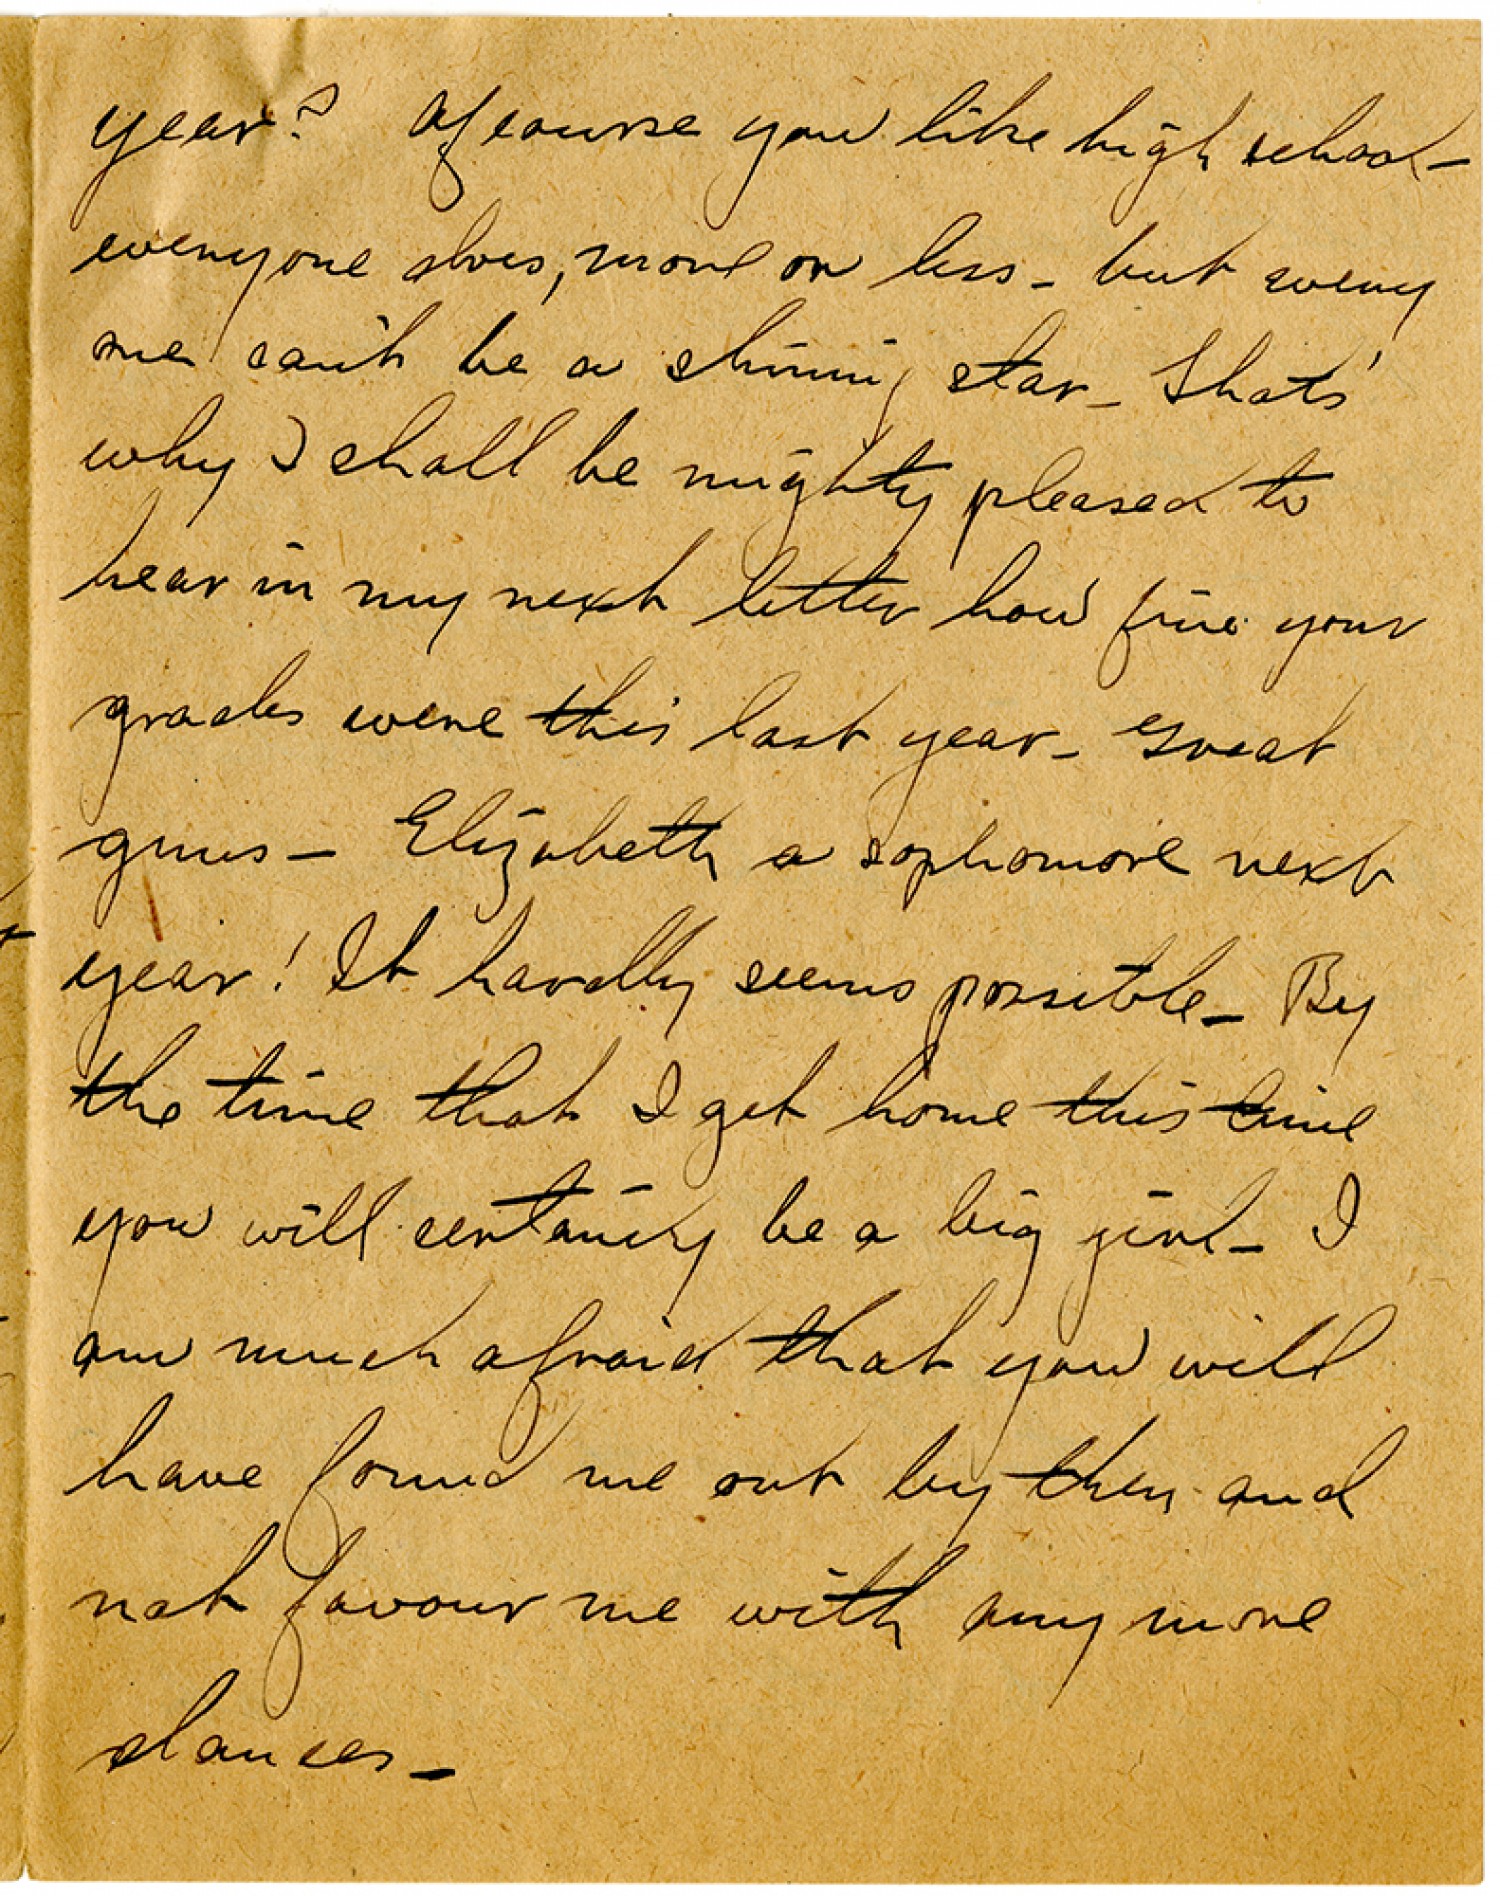 year? Of course you like high school -
everyone does, more or less - but every
one can't be a shining star - Thats'
why I shall be mighty pleased to
hear in my next letter how fine your
grades were this last year - Great
guns - Elizabeth a sophomore next
year! It hardly seems possible - By
the time that I get home this time
you will certainly be a big girl - I
am much afraid that you will
have found me out by then and
not favour me with any more
dances -